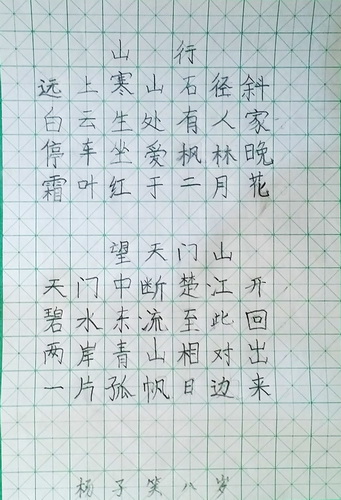 山行
远上寒山石径斜
白云生处有人家
停车坐爱枫林晚
霜叶红于二月花
望天门山
天门中断楚江开
碧水东流至此回
两岸青山相对出
一片孤帆日边来
杨子笑八岁